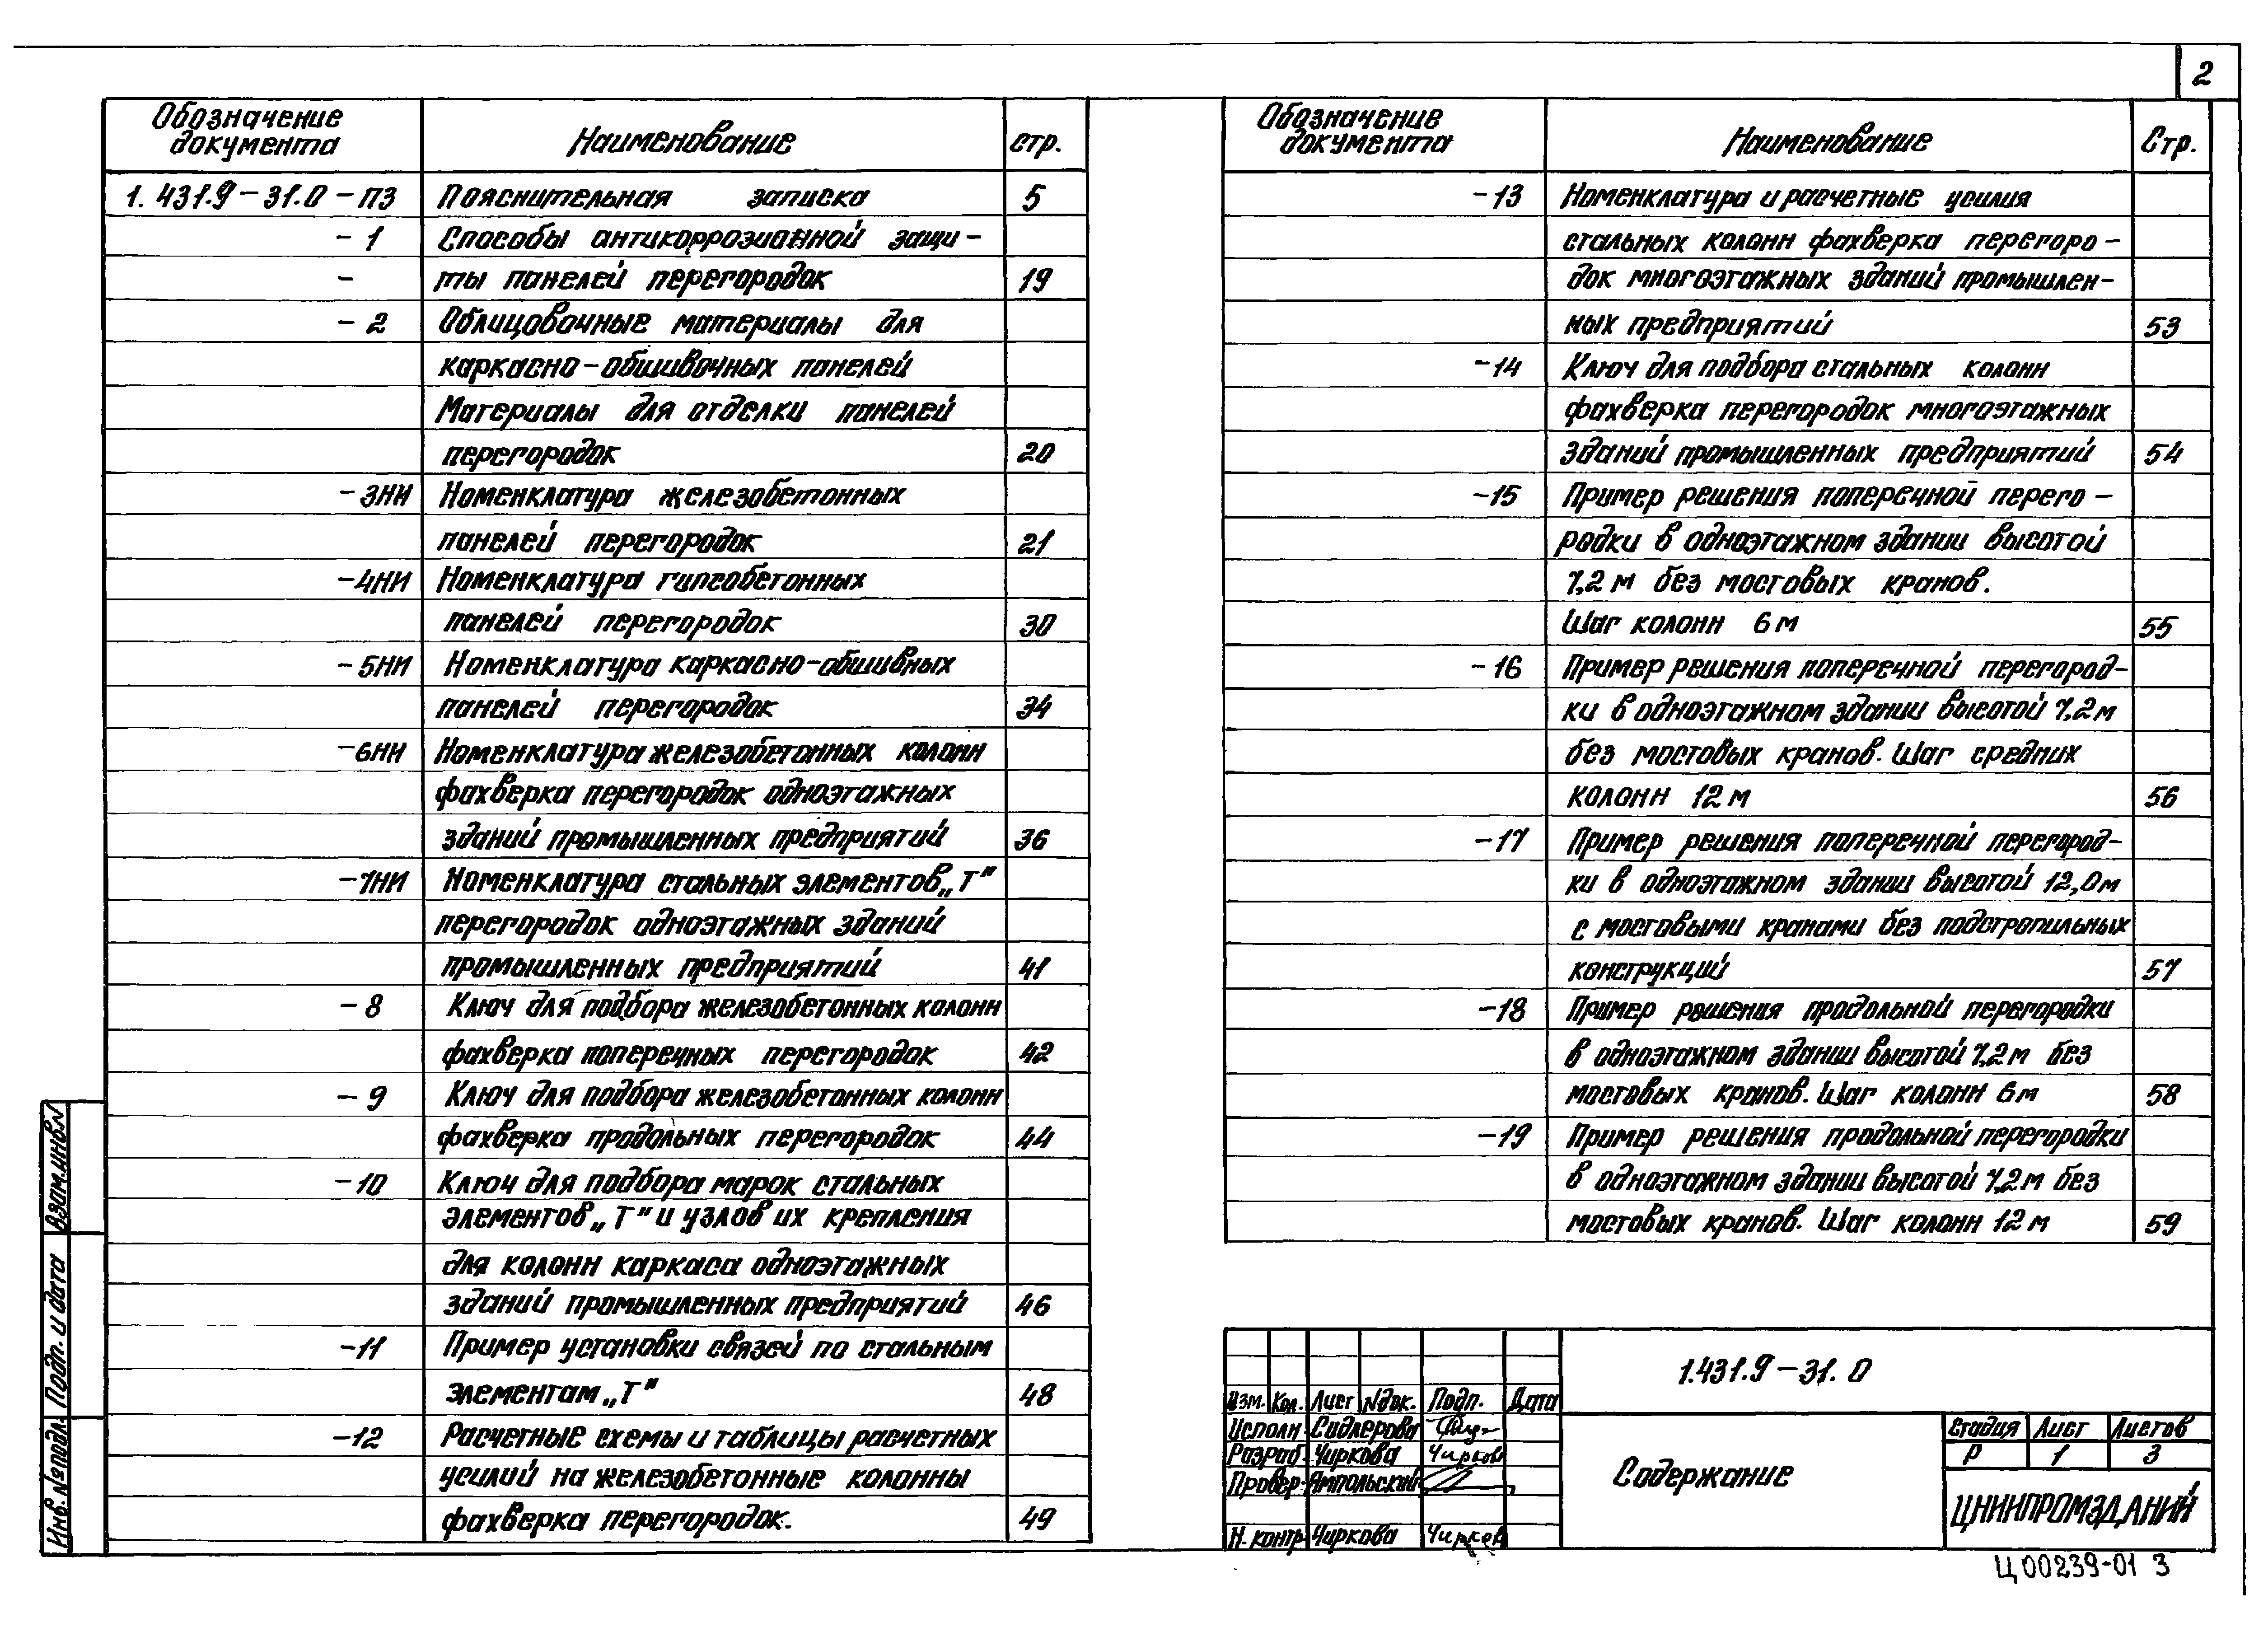 2
Обозначение документа Наименование стр.
1.431.9-31.0-ПЗ Пояснительная записка 5
-1 Способы антикоррозионной защи-
- ты панелей перегородок 19
-2 Облицовочные материалы для
каркасно-обшивочных панелей
Материалы для отделки панелей
перегородок 20
-3НИ Номенклатура железобетонных
панелей перегородок 21
-4НИ Номенклатура гипсобетонных
панелей перегородок 30
-5НИ Номенклатура каркасно-обшивных
панелей перегородок 34
-6НИ Номенклатура железобетонных колонн
фахверка перегородок одноэтажных
зданий промышленных предприятий 36
-7НИ Номенклатура стальных элементов „Т"
перегородок одноэтажных зданий
промышленных предприятий 41
-8 Ключ для подбора железобетонных колонн
фахверка поперечных перегородок 42
-9 Ключ для подбора железобетонных колонн
фахверка продольных перегородок 44
-10 Ключ для подбора марок стальных
элементов „Т" и узлов их крепления
для колонн каркаса одноэтажных
зданий промышленных предприятий 46
-11 Пример установки связей по стальным
элементам „Т" 48
-12 Расчетные схемы и таблицы расчетных
усилий на железобетонные колонны
фахверка перегородок. 49
Обозначение документа Наименование Стр.
-13 Номенклатура и расчетные усилия
стальных колонн фахверка перегоро-
док многоэтажных зданий промышлен-
ных предприятий 53
-14 Ключ для подбора стальных колонн
фахверка перегородок многоэтажных
зданий промышленных предприятий 54
-15 Пример решения поперечной перего-
родки в одноэтажном здании высотой
7,2 м без мостовых кранов.
Шаг колонн 6 м 55
-16 Пример решения поперечной перегород-
ки в одноэтажном здании высотой 7,2 м
без мостовых кранов. Шаг средних
колонн 12 м 56
-17 Пример решения поперечной перегород-
ки в одноэтажном здании высотой 12,0 м
с мостовыми кранами без подстропильных
конструкций 57
-18 Пример решения продольной перегородки
в одноэтажном здании высотой 7,2 м без
мостовых кранов. Шаг колонн 6 м 58
-19 Пример решения продольной перегородки
в одноэтажном здании высотой 7,2 м без
мостовых кранов. Шаг колонн 12 м 59
Взам.инв.N
Подп. и дата
Инв.№подл.
1.431.9-31.0
Изм. Кол. Лист Nдок. Подп. Дата
Исполн. Садлерова
Разраб. Чиркова Чирков
Провер. Ямпольский
Н.контр. Чиркова Чирков
Содержание
Стадия Лист Листов
Р 1 3
ЦНИИПРОМЗДАНИЙ
Ц00239-01 3